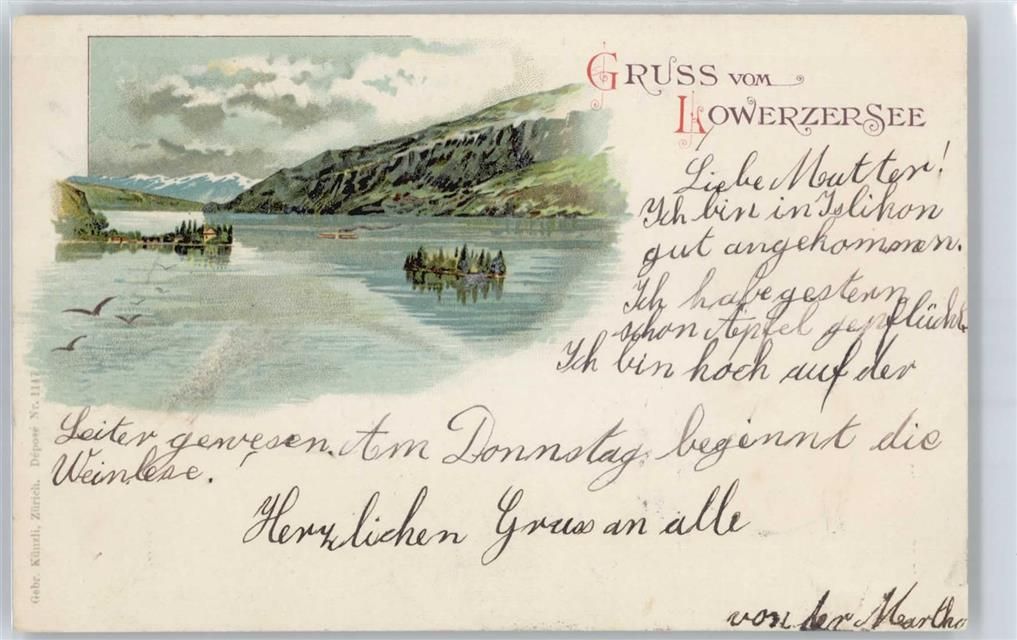 GRUSS VOM
LOWERZERSEE
Liebe Mutter!
Ich bin in Islikon
gut angekommen.
Ich habe gestern
schon Äpfel gepflückt.
Ich bin hoch auf der
Leiter gewesen. Am Donnstag beginnt die
Weinlese.
Herzlichen Gruss an alle
von der Martha
Gebr. Künzli, Zürich. Déposé Nr. 1147